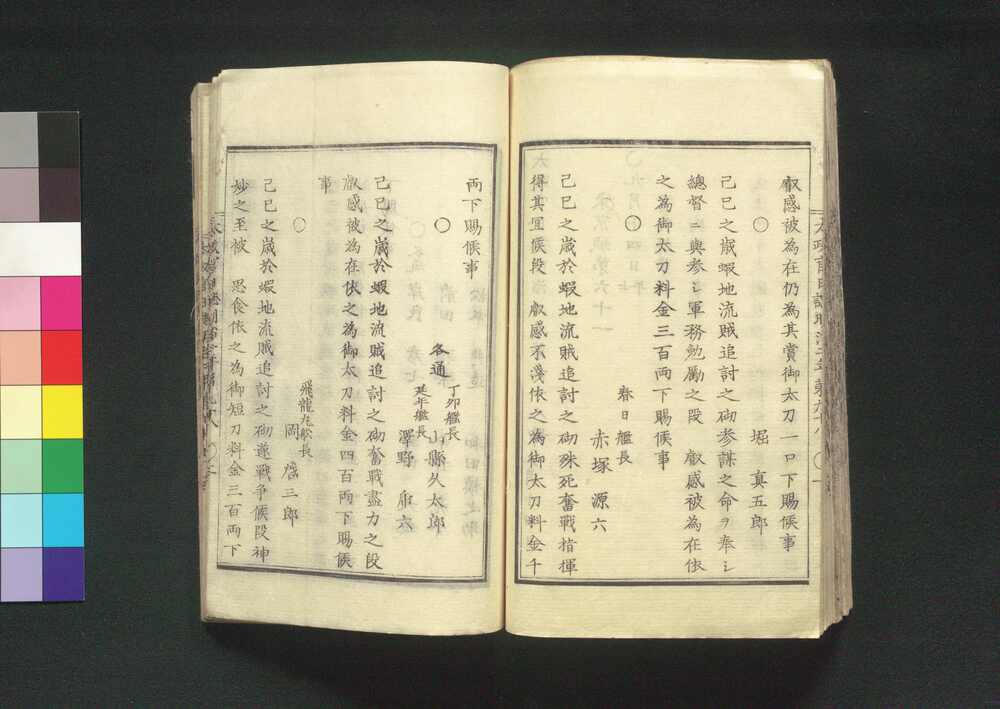 叡感被為在仍為其賞御太刀一口下賜候事
○　堀　真五郎
己巳之歳蝦地流賊追討之砌参謀之命ヲ奉シ
總督ニ輿参シ軍務勉勵之段　叡感被為在依
之為御太刀料金三百両下賜候事
春日艦長
○　赤塚　源六
己巳之歳於蝦地流賊追討之砌殊死奮戦指揮
得其宜候段　叡感不淺依之為御太刀料金千
両下賜候事
丁卯艦長
○　各通　山縣久太郎
延年艦長
澤野
己巳之歳於蝦地流賊追討之砌奮戰盡力之段
叡感被為在依之為御太刀料金四百両下賜候
事
飛龍丸舩長
○　岡　三郎
己巳之歳於蝦地流賊追討之砌遂戦争候段神
妙之至被　思食依之為御短刀料金三百両下